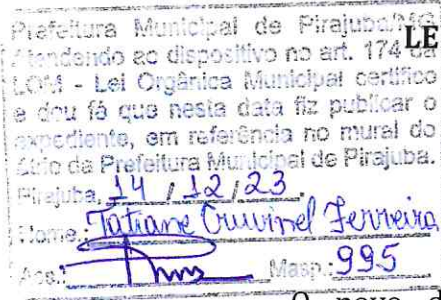 Prefeitura Municipal de Pirajuba/MG
Atendendo ao dispositivo no art. 174 da LE
LOM - Lei Orgânica Municipal certifico
e dou fá que nesta data fiz publicar o
expediente, em referência no mural do
átrio da Prefeitura Municipal de Pirajuba.
Pirajuba, 14 / 12 / 23.
Nome.: Tatiane Cruvinel Ferreira
Ass.: Masp.: 995
O povo d